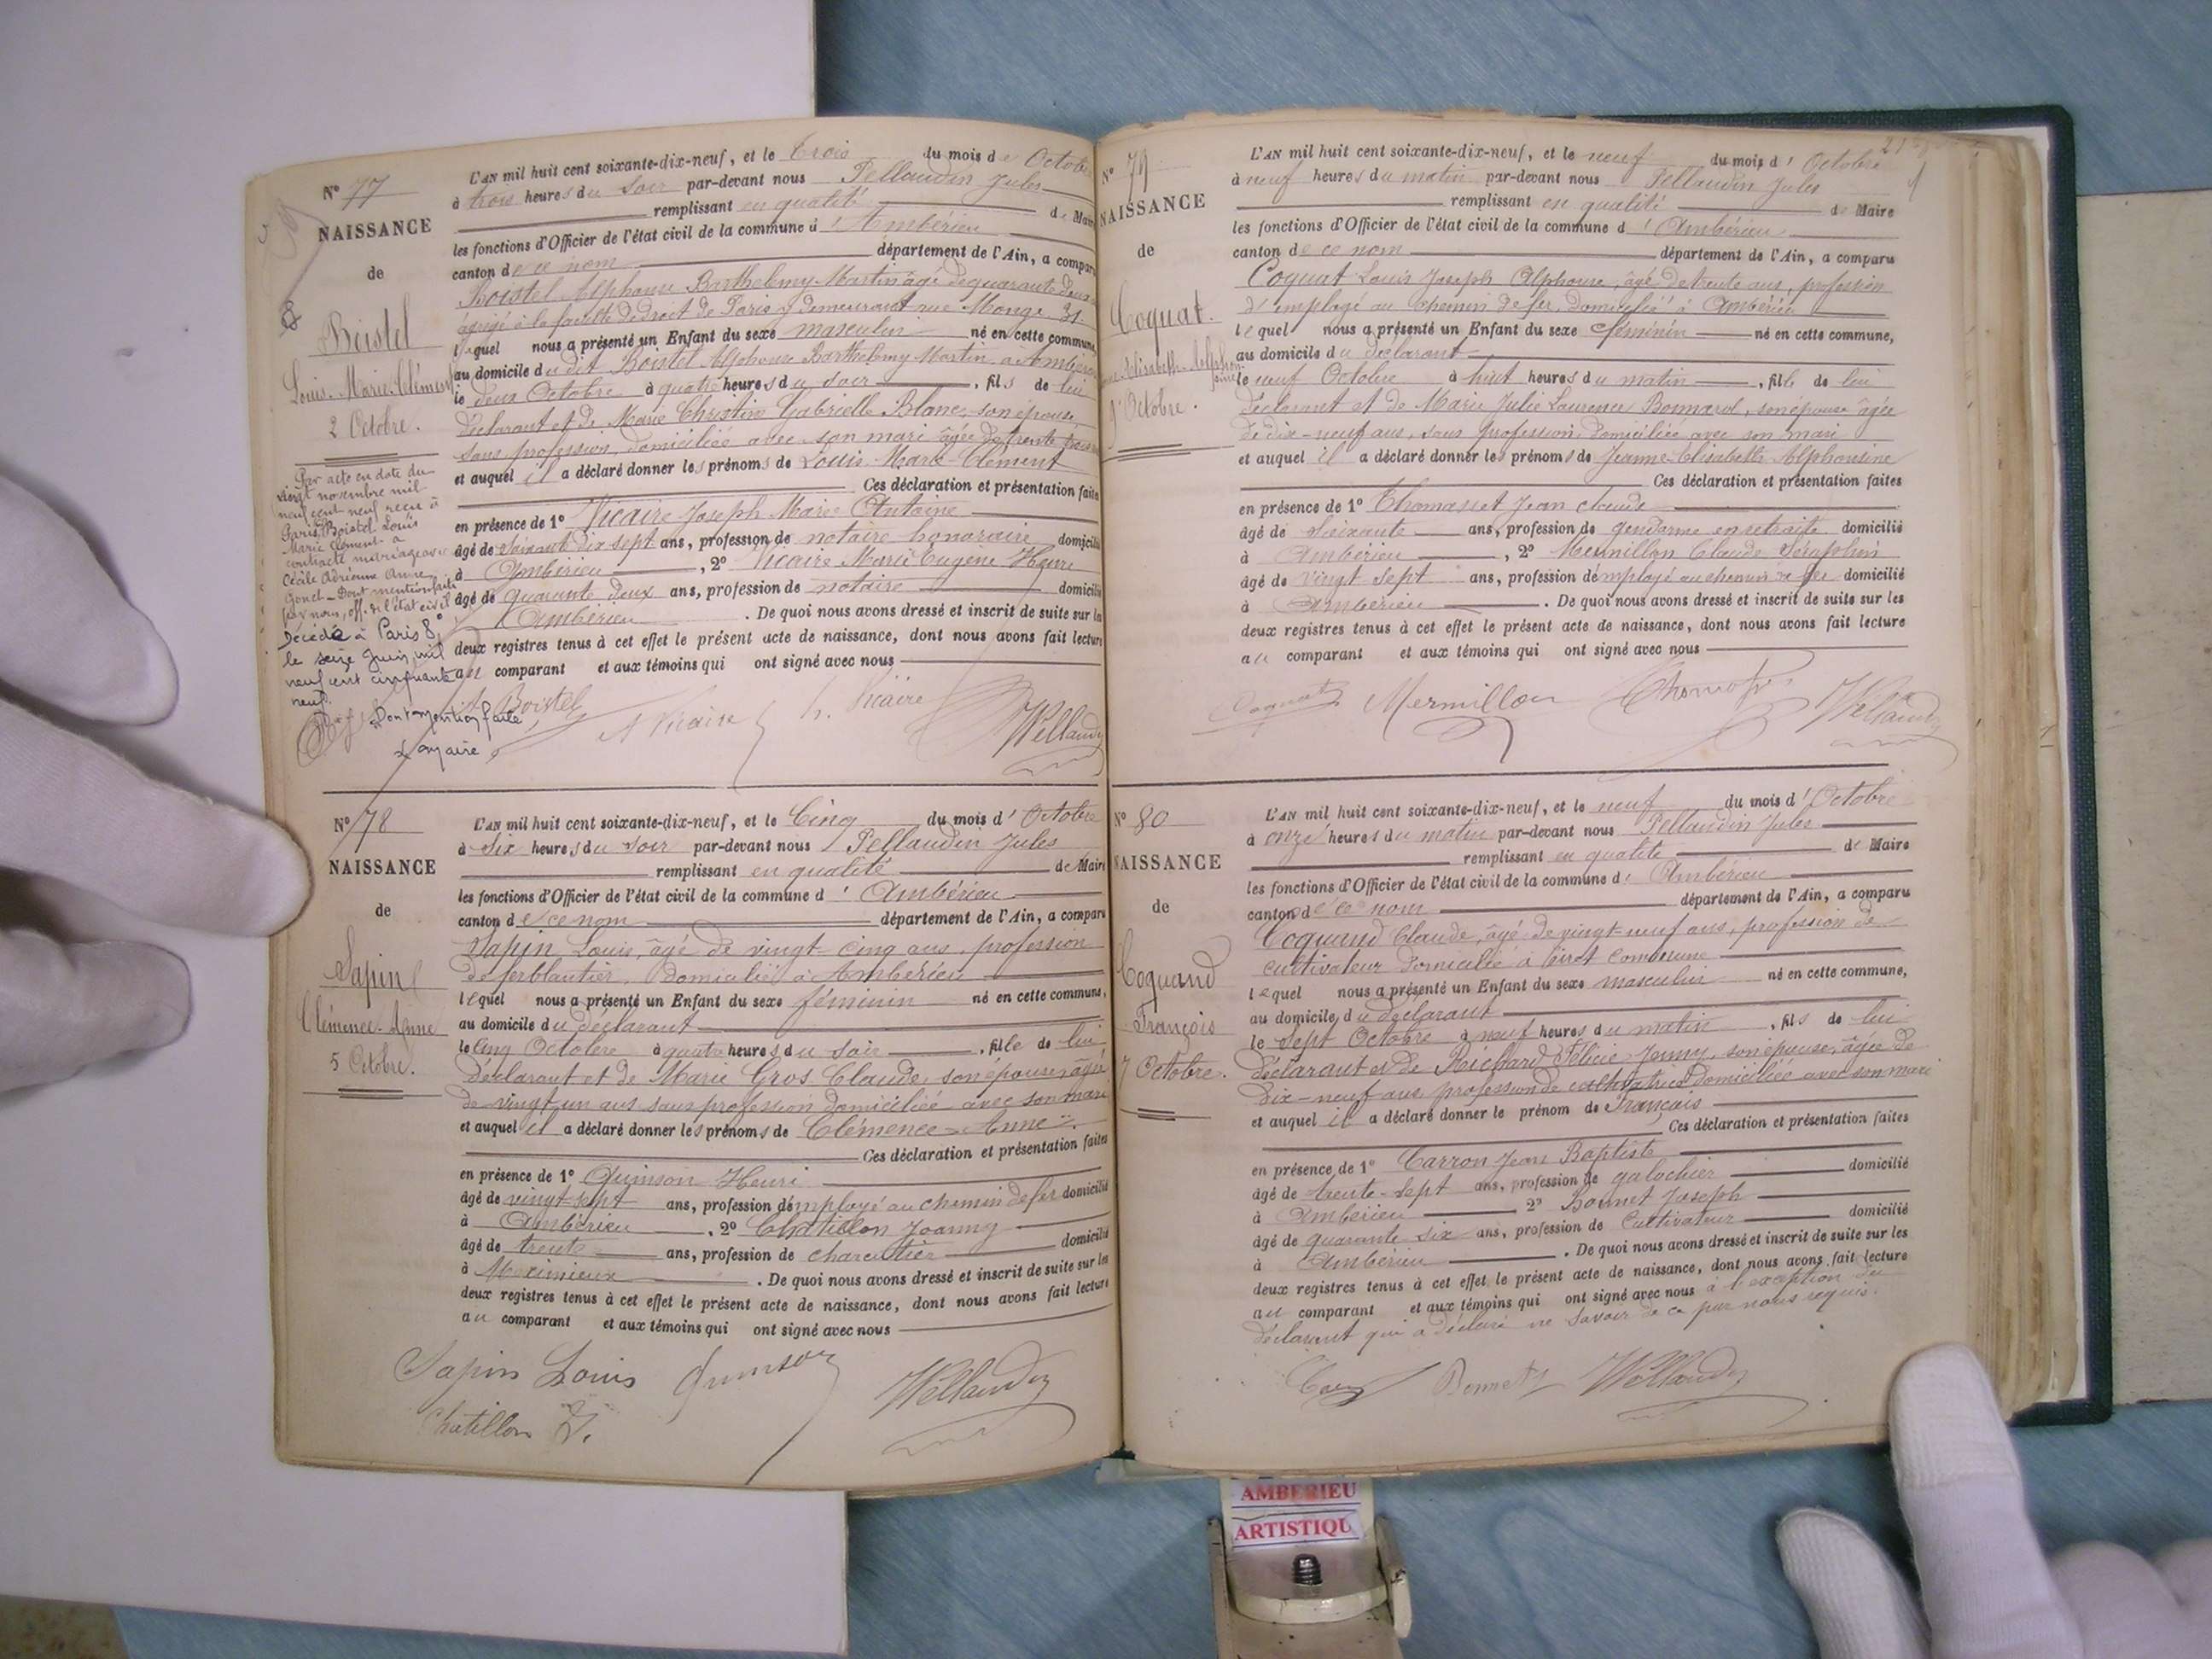 N° 77
NAISSANCE
de
Boistel
Louis-Marie-Clément
2 Octobre.
Par acte en date du
vingt novembre mil
neuf cent neuf reçu à
Paris, Boistel Louis
Marie Clément a
contracté mariage avec
Cécile Adrienne Anne
Gonet - Dont mention faite
par nous, off. de l'état civil
Décédé à Paris 8e
le seize Juin mil
neuf cent cinquante
neuf.
Dont mention faite
Le maire
L'AN mil huit cent soixante-dix-neuf, et le Trois du mois de Octobre
à trois heures du soir par-devant nous Pellaudin Jules
remplissant en qualité de Maire
les fonctions d'Officier de l'état civil de la commune d' Ambérieu
canton de ce nom département de l'Ain, a comparu
Boistel Alphonse Barthelemy Martin âgé de quarante deux
agrégé à la faculté de droit de Paris y demeurant rue Monge 31
lequel nous a présenté un Enfant du sexe masculin né en cette commune,
au domicile du dit Boistel Alphonse Barthelemy Martin, a Ambérieu
le deux Octobre à quatre heures du soir, fils de lui
déclarant et de Marie Christine Gabrielle Blanc, son épouse,
sans profession, domiciliée avec son mari âgée de trente trois
et auquel il a déclaré donner les prénoms de Louis Marie Clément
Ces déclaration et présentation faites
en présence de 1° Vicaire Joseph Marie Antoine
âgé de soixante dix sept ans, profession de notaire honoraire domicilié
à Ambérieu, 2° Vicaire Marie Eugène Henri
âgé de quarante deux ans, profession de notaire domicilié
à Ambérieu. De quoi nous avons dressé et inscrit de suite sur les
deux registres tenus à cet effet le présent acte de naissance, dont nous avons fait lecture
au comparant et aux témoins qui ont signé avec nous
A Boistel A Vicaire h. Vicaire Pellaudin
N° 78
NAISSANCE
de
Sapin
Clémence-Anne
5 Octobre.
L'AN mil huit cent soixante-dix-neuf, et le Cinq du mois d' Octobre
à Six heures du soir par-devant nous Pellaudin Jules
remplissant en qualité de Maire
les fonctions d'Officier de l'état civil de la commune d' Ambérieu
canton de ce nom département de l'Ain, a comparu
Sapin Louis, âgé de vingt-cinq ans, profession
de ferblantier, domicilié à Ambérieu
lequel nous a présenté un Enfant du sexe féminin né en cette commune,
au domicile du déclarant
le Cinq Octobre à quatre heures du soir, fille de lui
déclarant et de Marie Gros Claude, son épouse, âgée
de vingt-un ans sans profession domiciliée avec son mari
et auquel il a déclaré donner les prénoms de Clémence-Anne.
Ces déclaration et présentation faites
en présence de 1° Quinson Henri
âgé de vingt-sept ans, profession d'employé au chemin de fer domicilié
à Ambérieu, 2° Chatillon Joanny
âgé de trente ans, profession de charcutier domicilié
à Meximieux. De quoi nous avons dressé et inscrit de suite sur les
deux registres tenus à cet effet le présent acte de naissance, dont nous avons fait lecture
au comparant et aux témoins qui ont signé avec nous
Sapin Louis Quinson Pellaudin
Chatillon J.
N° 79
NAISSANCE
de
Coquat.
Elisabeth-Alphonsine
9 Octobre.
L'AN mil huit cent soixante-dix-neuf, et le neuf du mois d' Octobre
à neuf heures du matin par-devant nous Pellaudin Jules
remplissant en qualité de Maire
les fonctions d'Officier de l'état civil de la commune d' Ambérieu
canton de ce nom département de l'Ain, a comparu
Coquat Louis Joseph Alphonse, âgé de trente ans, profession
d'employé au chemin de fer, domicilié à Ambérieu
lequel nous a présenté un Enfant du sexe féminin né en cette commune,
au domicile du déclarant
le neuf Octobre à huit heures du matin, fille de lui
déclarant et de Marie Julie Laurence Bonnard, son épouse âgée
de dix-neuf ans, sans profession, domiciliée avec son mari
et auquel il a déclaré donner les prénoms de Jeanne-Elisabeth Alphonsine
Ces déclaration et présentation faites
en présence de 1° Thomasset Jean claude
âgé de Soixante ans, profession de gendarme en retraite domicilié
à Ambérieu, 2° Mermillon Claude Séraphin
âgé de vingt sept ans, profession d'employé au chemin de fer domicilié
à Ambérieu. De quoi nous avons dressé et inscrit de suite sur les
deux registres tenus à cet effet le présent acte de naissance, dont nous avons fait lecture
au comparant et aux témoins qui ont signé avec nous
Coquat Mermillon Thomasset Pellaudin
N° 80
NAISSANCE
de
Coquand
François
7 Octobre.
L'AN mil huit cent soixante-dix-neuf, et le neuf du mois d' Octobre
à onze heures du matin par-devant nous Pellaudin Jules
remplissant en qualité de Maire
les fonctions d'Officier de l'état civil de la commune d' Ambérieu
canton de ce nom département de l'Ain, a comparu
Coquand Claude, âgé de vingt-neuf ans, profession de
cultivateur domicilié à
lequel nous a présenté un Enfant du sexe masculin né en cette commune,
au domicile du déclarant
le sept Octobre à neuf heures du matin, fils de lui
déclarant et de Richard Félicie Jenny, son épouse, âgée de
dix-neuf ans profession de cultivatrice domiciliée avec son mari
et auquel il a déclaré donner le prénom de Français
Ces déclaration et présentation faites
en présence de 1° Carron Jean Baptiste
âgé de trente-sept ans, profession de galochier domicilié
à Ambérieu 2° Bonnet Joseph
âgé de quarante six ans, profession de Cultivateur domicilié
à Ambérieu. De quoi nous avons dressé et inscrit de suite sur les
deux registres tenus à cet effet le présent acte de naissance, dont nous avons fait lecture
au comparant et aux témoins qui ont signé avec nous à l'exception du
déclarant qui a déclaré ne savoir de ce par nous requis.
Bonnet Pellaudin
AMBERIEU
ARTISTIQU